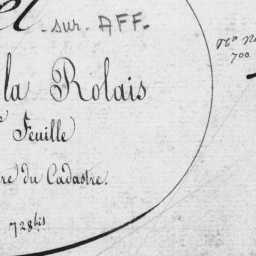 sur. AFF.
la Rolais
Feuille
du Cadastre.
728bis
700